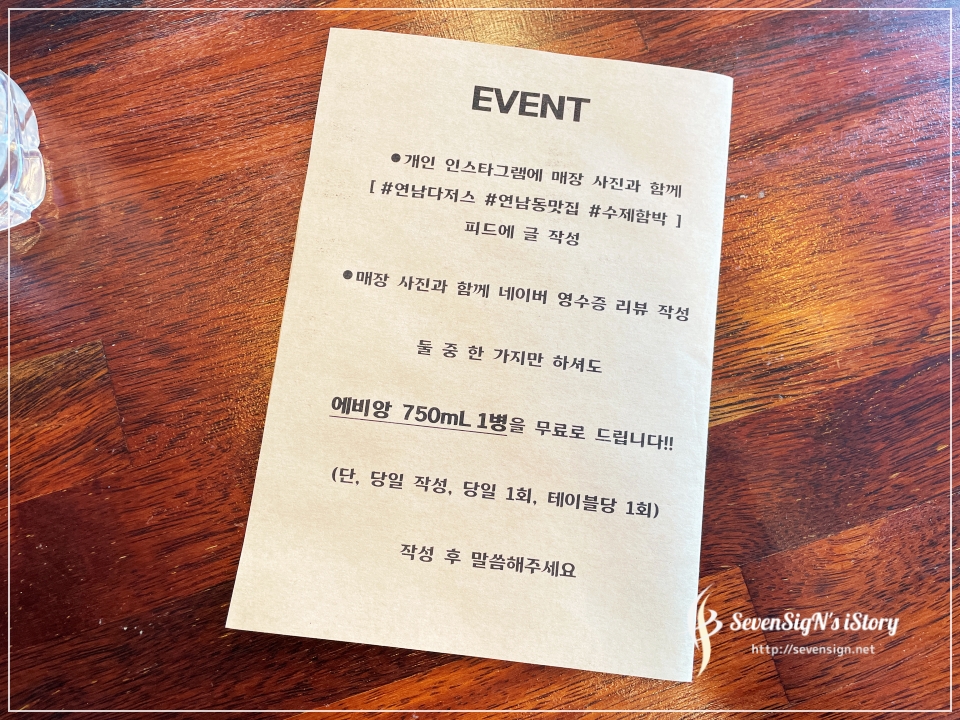 EVENT
●개인 인스타그램에 매장 사진과 함께
[ #연남다저스 #연남동맛집 #수제함박 ]
피드에 글 작성
●매장 사진과 함께 네이버 영수증 리뷰 작성
둘 중 한 가지만 하셔도
에비앙 750mL 1병을 무료로 드립니다!!
(단, 당일 작성, 당일 1회, 테이블당 1회)
작성 후 말씀해주세요
SevenSigN's iStory
http://sevensign.net